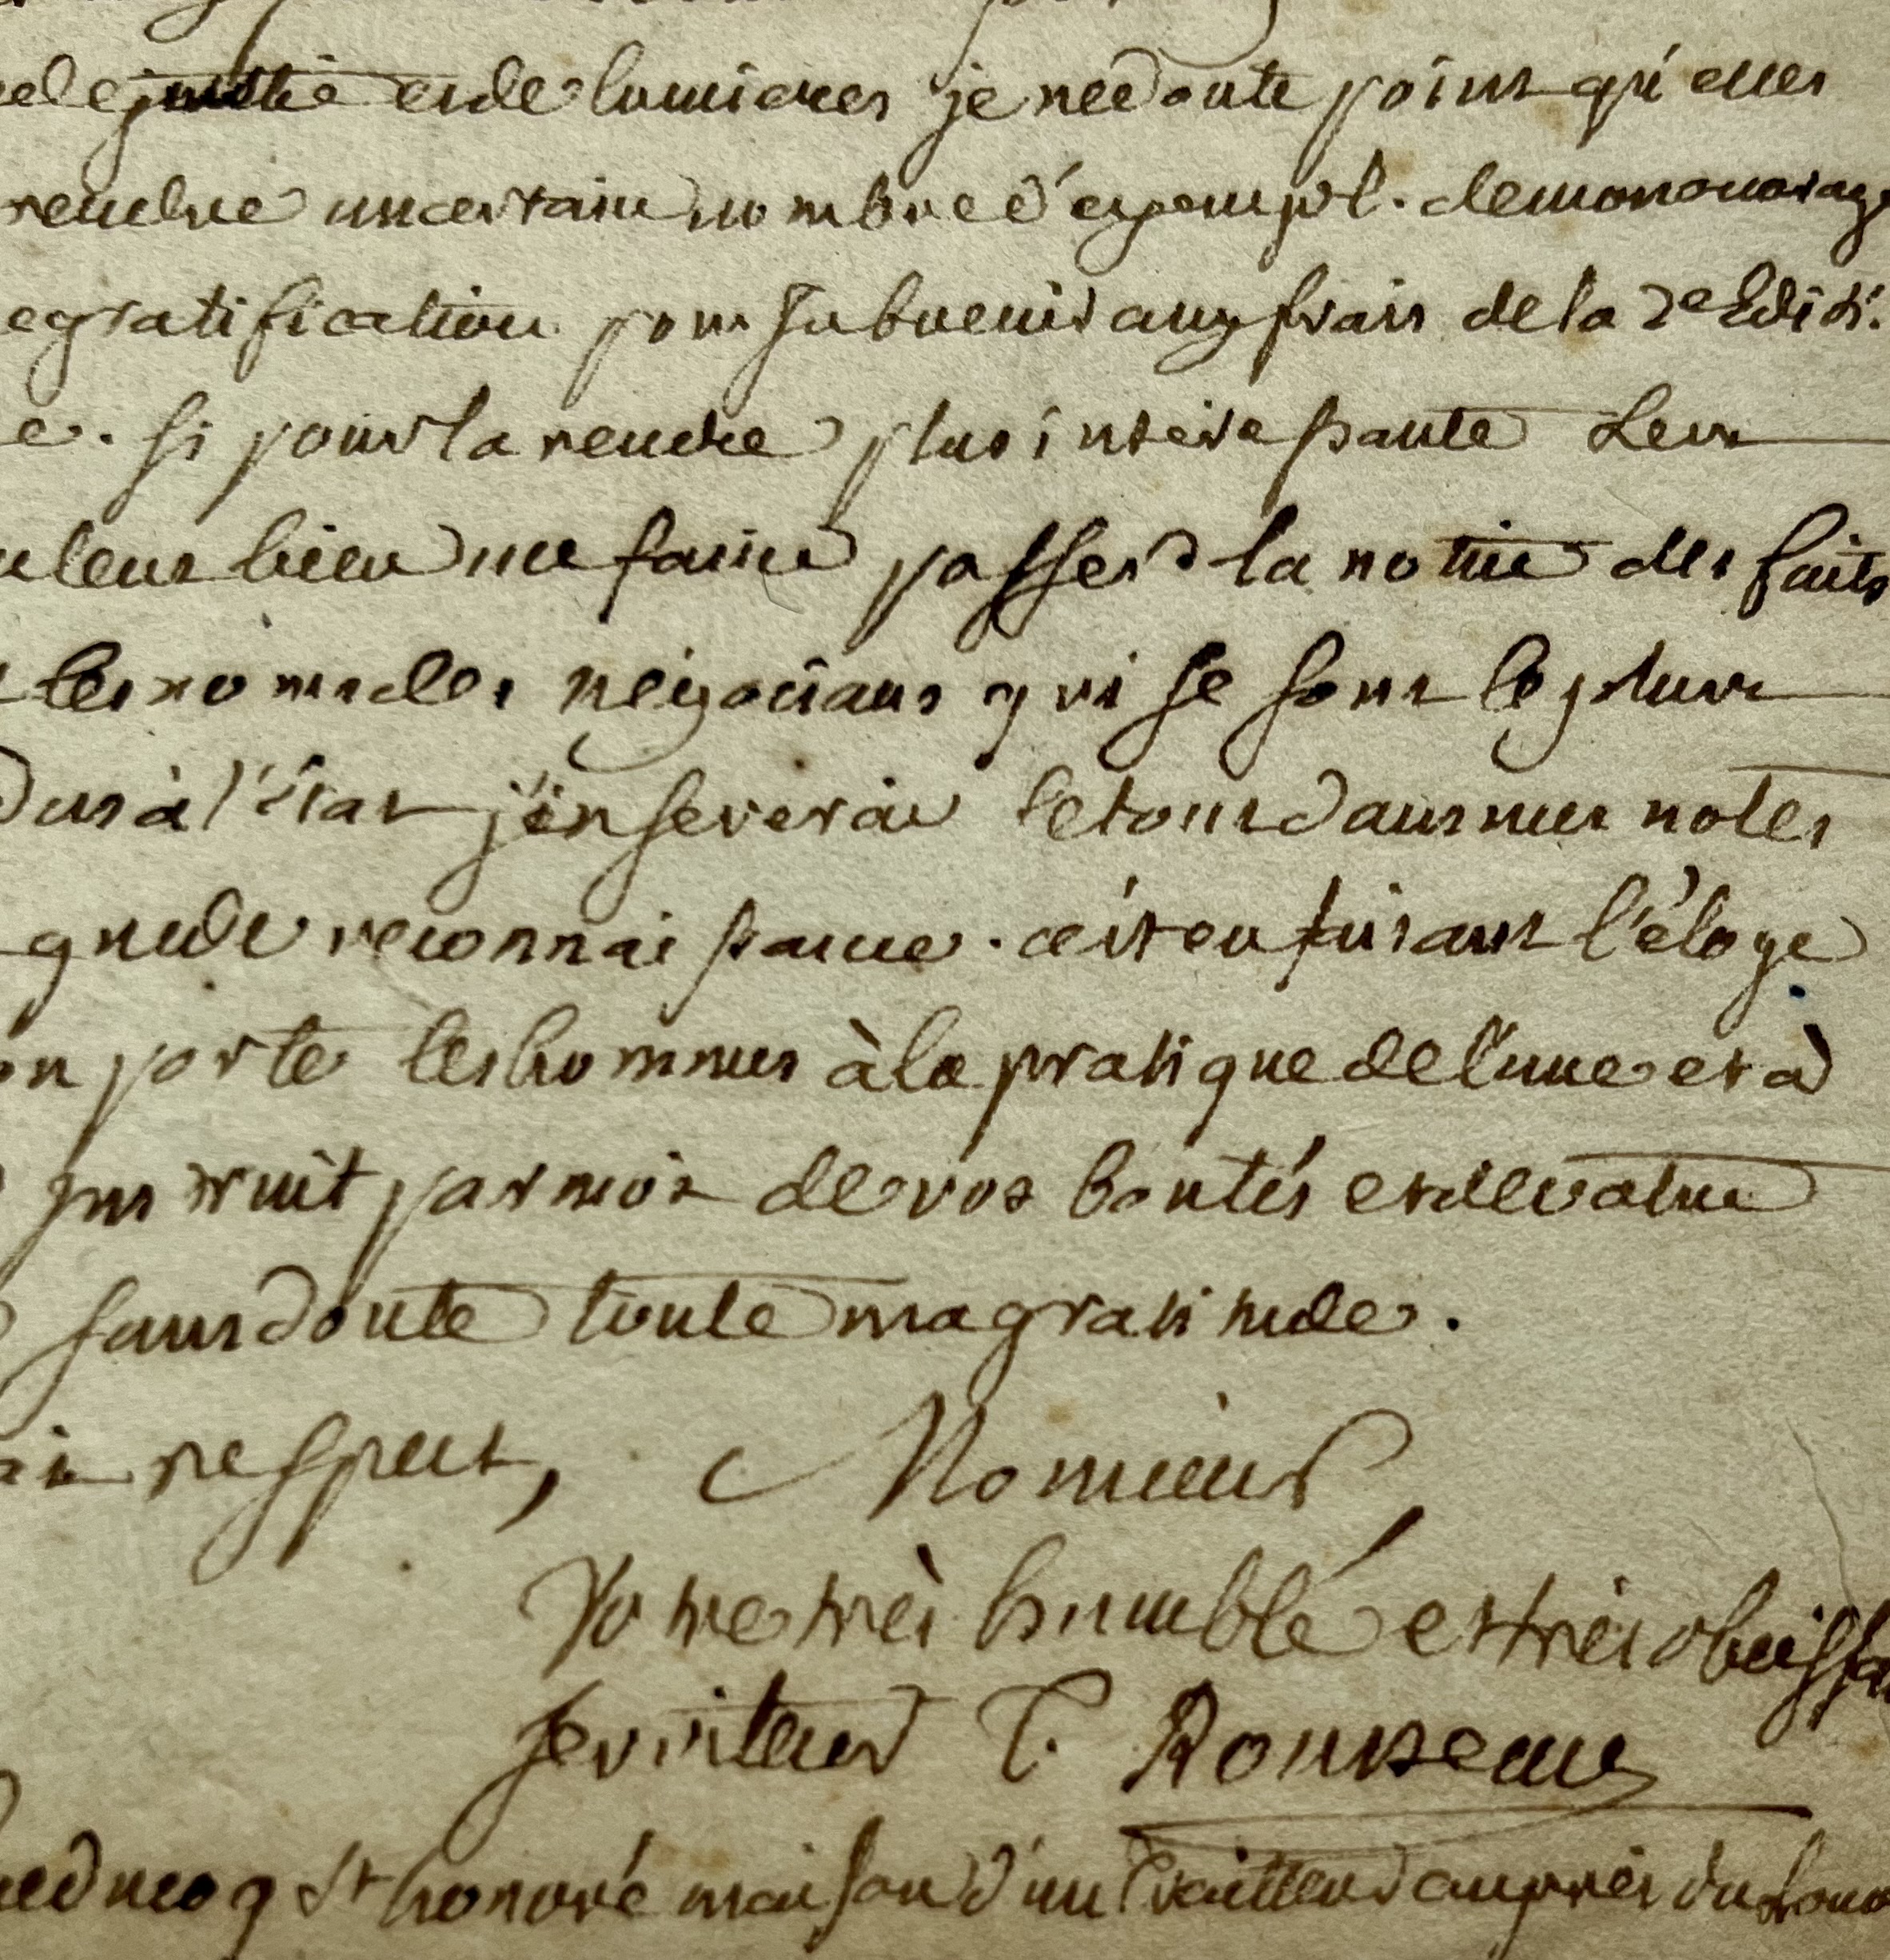 de justice et de lumieres je ne doute point qu'elles
rendre un certain nombre d'exempl. de mon ouvrage
gratification pour subvenir aux frais de la 2e Edit.
e. si pour la rendre plus interessante
bien me faire passer la notice des faits
les noms des négocians qui se sont le plus
à l'état j'insererai le tout dans mes notes
reconnaissance. c'est en faisant l'éloge
on porte les hommes à la pratique de l'une et à
par moi de vos bontés et de
sans doute toute ma gratitude.
respect, Monsieur
Votre très humble et très obeissa
serviteur T. Rousseau
du coq St honoré maison d'un Traitteur auprès du Louv